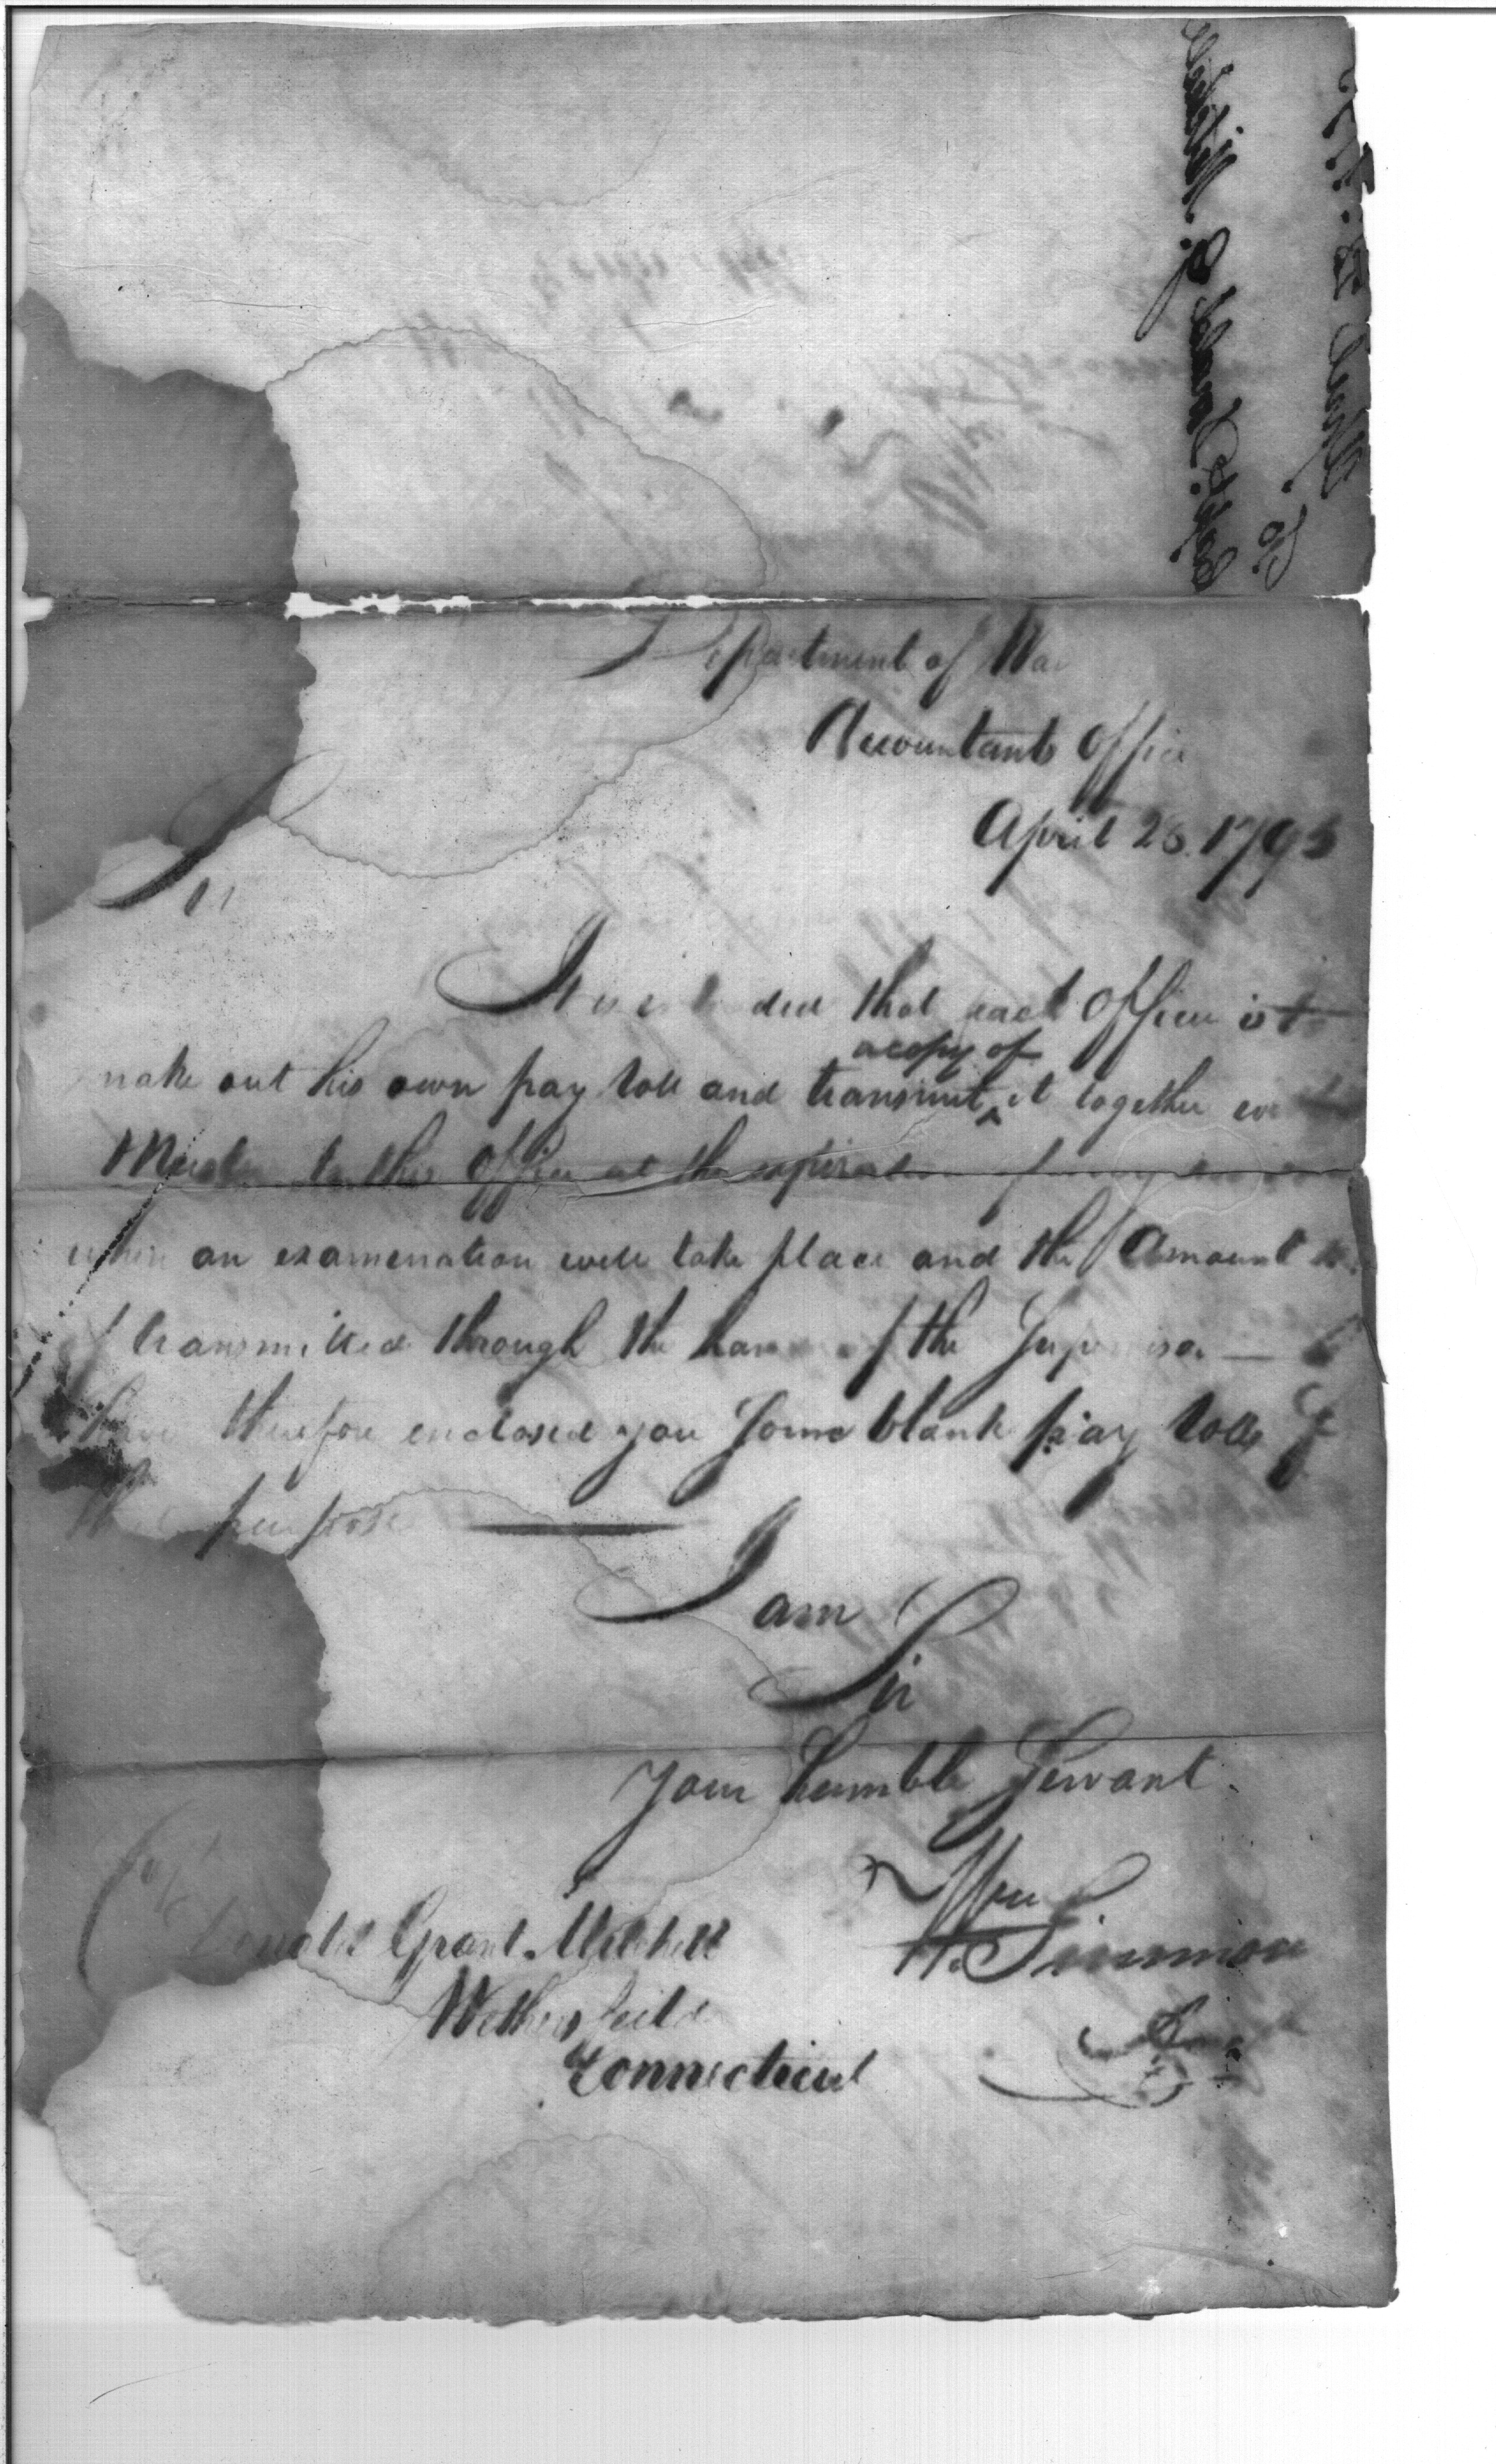 Department of War
Accountants Office
April 28. 1795
Sir
It is intended that each Officer is to
make out his own pay roll and transmit
a copy of
it together with
Muster to this Office at the expiration of
when an examenation will take place and the Amount
transmitted through the hands of the Supervisor —
have therefore enclosed you Some blank pay rolls
purpose
I am
Sir
Your humble Servant
Wm
Simmons
Capt
Donald Grant Mitchell
Wethersfeild
Connecticut
Capt. Donald G. Mitchell
To
April 28.